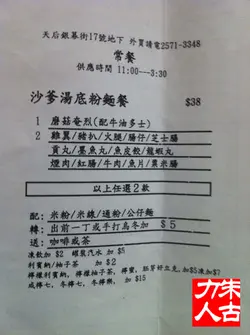 天后銀幕街17號地下 外賣請電2571-3348
常餐
供應時間 11:00---3:30
沙爹湯底粉麵餐 $38
1 蘑菇奄烈(配牛油多士)
2 雞翼/豬扒/火腿/腸仔/芝士腸
貢丸/墨魚丸/魚皮餃/龍蝦丸
煙肉/紅腸/牛肉/魚片/粟米腸
以上任選2款
配: 米粉/米線/通粉/公仔麵
轉: 出前一丁或手打烏冬加 $5
送: 咖啡或茶
凍飲加 $2 罐裝汽水 加 $5
利賓納/柚子茶 加 $2
檸檬利賓納, 檸檬柚子茶, 檸蜜, 胚芽好立克, 加$5凍加$7
咸檸七, 冬檸七, 冬檸樂, 加 $15
朱古力人